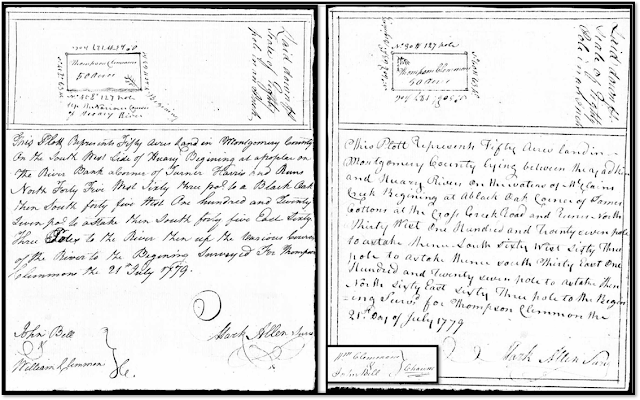 Thompson Clemmons
50 Acres
Laid down of a
Scale of Eighty
pole in an Inch
This Plott Represents Fifty Acres land in Montgomery County
On the South West Side of Uwary Begining at a poplar on
The River Bank a Corner of Turner Harris and Runs
North Forty Five West Sixty three pol to a Black Oak
then South forty five West One hundred and Twenty
Seven pol to a Stake then South forty five East Sixty
Three Poles to the River then up the Various Courses
of the River to the Begining Surveyed For Thompson
Clemmons the 21st July 1779.
John Bell
William Clemmon
Mark Allen Surv
Thompson Clemmons
50 Acres
Laid down of a
Scale of Eighty
Pole in an Inch
This Plott Represents Fifty Acres land in
Montgomery County lying between the
and Uwary River on the waters of McLains
Creek Begining at a black Oak Corner of James
Cottons at the Road and Runs North
Thirty West One Hundred and Twenty seven pole
to a stake thence South Sixty West Sixty Three
pole to a stake thence south Thirty East One
Hundred and Twenty seven pole to a stake then
North Sixty East Sixty Three pole to the Begin
=ing Survd. for Thompson Clemmon the
21st Day of July 1779
Mark Allen Surv
Wm Clemmons
John Bell